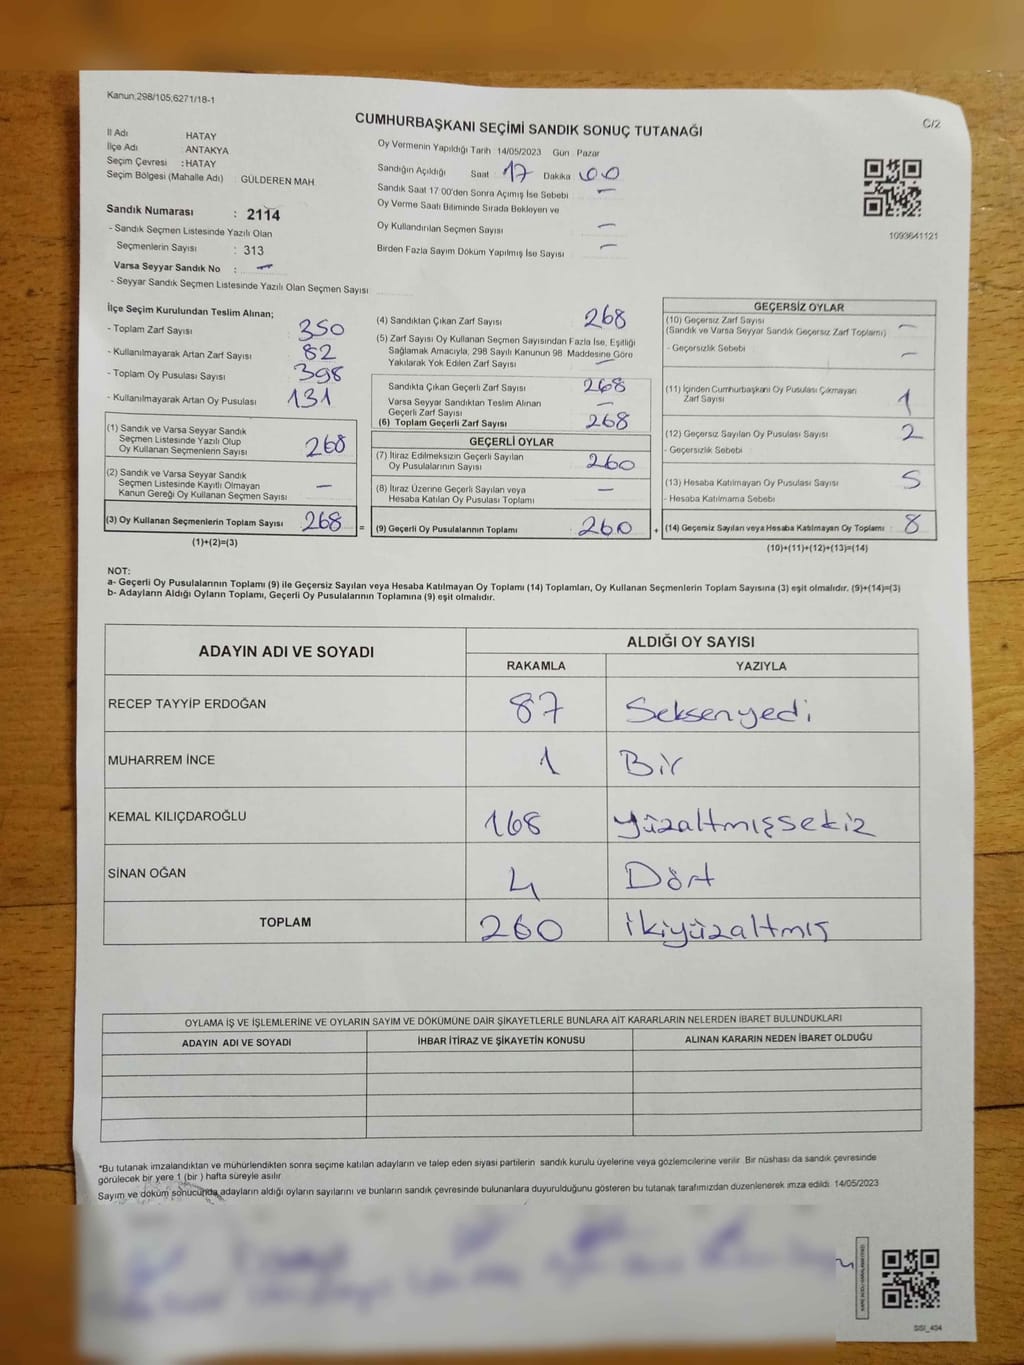 Kanun:298/105;6271/18-1
C/2
CUMHURBAŞKANI SEÇİMİ SANDIK SONUÇ TUTANAĞI
İl Adı HATAY
İlçe Adı ANTAKYA
Seçim Çevresi : HATAY
Seçim Bölgesi (Mahalle Adı) GÜLDEREN MAH
Sandık Numarası : 2114
- Sandık Seçmen Listesinde Yazılı Olan
Seçmenlerin Sayısı : 313
Varsa Seyyar Sandık No : —
- Seyyar Sandık Seçmen Listesinde Yazılı Olan Seçmen Sayısı
Oy Vermenin Yapıldığı Tarih 14/05/2023 Gün Pazar
Sandığın Açıldığı Saat : 17 Dakika 00
Sandık Saat 17:00'den Sonra Açımış İse Sebebi —
Oy Verme Saati Bitiminde Sırada Bekleyen ve
Oy Kullandırılan Seçmen Sayısı —
Birden Fazla Sayım Döküm Yapılmış İse Sayısı —
1093641121
İlçe Seçim Kurulundan Teslim Alınan;
- Toplam Zarf Sayısı 350
- Kullanılmayarak Artan Zarf Sayısı 82
- Toplam Oy Pusulası Sayısı 398
- Kullanılmayarak Artan Oy Pusulası 131
(1) Sandık ve Varsa Seyyar Sandık
Seçmen Listesinde Yazılı Olup
Oy Kullanan Seçmenlerin Sayısı 268
(2) Sandık ve Varsa Seyyar Sandık
Seçmen Listesinde Kayıtlı Olmayan
Kanun Gereği Oy Kullanan Seçmen Sayısı —
(3) Oy Kullanan Seçmenlerin Toplam Sayısı 268 =
(1)+(2)=(3)
(4) Sandıktan Çıkan Zarf Sayısı 268
(5) Zarf Sayısı Oy Kullanan Seçmen Sayısından Fazla İse, Eşitliği
Sağlamak Amacıyla, 298 Sayılı Kanunun 98 Maddesine Göre
Yakılarak Yok Edilen Zarf Sayısı —
Sandıkta Çıkan Geçerli Zarf Sayısı 268
Varsa Seyyar Sandıktan Teslim Alınan
Geçerli Zarf Sayısı —
(6) Toplam Geçerli Zarf Sayısı 268
GEÇERLİ OYLAR
(7) İtiraz Edilmeksizin Geçerli Sayılan
Oy Pusulalarının Sayısı 260
(8) İtiraz Üzerine Geçerli Sayılan veya
Hesaba Katılan Oy Pusulası Toplamı —
(9) Geçerli Oy Pusulalarının Toplamı 260 +
GEÇERSİZ OYLAR
(10) Geçersiz Zarf Sayısı —
(Sandık ve Varsa Seyyar Sandık Geçersiz Zarf Toplamı)
- Geçersizlik Sebebi —
(11) İçinden Cumhurbaşkanı Oy Pusulası Çıkmayan
Zarf Sayısı 1
(12) Geçersiz Sayılan Oy Pusulası Sayısı 2
- Geçersizlik Sebebi
(13) Hesaba Katılmayan Oy Pusulası Sayısı 5
- Hesaba Katılmama Sebebi
(14) Geçersiz Sayılan veya Hesaba Katılmayan Oy Toplamı : 8
(10)+(11)+(12)+(13)=(14)
NOT:
a- Geçerli Oy Pusulalarının Toplamı (9) ile Geçersiz Sayılan veya Hesaba Katılmayan Oy Toplamı (14) Toplamları, Oy Kullanan Seçmenlerin Toplam Sayısına (3) eşit olmalıdır. (9)+(14)=(3)
b- Adayların Aldığı Oyların Toplamı, Geçerli Oy Pusulalarının Toplamına (9) eşit olmalıdır.
ADAYIN ADI VE SOYADI
ALDIĞI OY SAYISI
RAKAMLA YAZIYLA
RECEP TAYYİP ERDOĞAN 87 Seksenyedi
MUHARREM İNCE 1 Bir
KEMAL KILIÇDAROĞLU 168 Yüzaltmışsekiz
SİNAN OĞAN 4 Dört
TOPLAM 260 ikiyüzaltmış
OYLAMA İŞ VE İŞLEMLERİNE VE OYLARIN SAYIM VE DÖKÜMÜNE DAİR ŞİKAYETLERLE BUNLARA AİT KARARLARIN NELERDEN İBARET BULUNDUKLARI
ADAYIN ADI VE SOYADI İHBAR İTİRAZ VE ŞİKAYETİN KONUSU ALINAN KARARIN NEDEN İBARET OLDUĞU
*Bu tutanak imzalandıktan ve mühürlendikten sonra seçime katılan adayların ve talep eden siyasi partilerin sandık kurulu üyelerine veya gözlemcilerine verilir. Bir nüshası da sandık çevresinde
görülecek bir yere 1 (bir ) hafta süreyle asılır
Sayım ve döküm sonucunda adayların aldığı oyların sayılarını ve bunların sandık çevresinde bulunanlara duyurulduğunu gösteren bu tutanak tarafımızdan düzenlenerek imza edildi. 14/05/2023